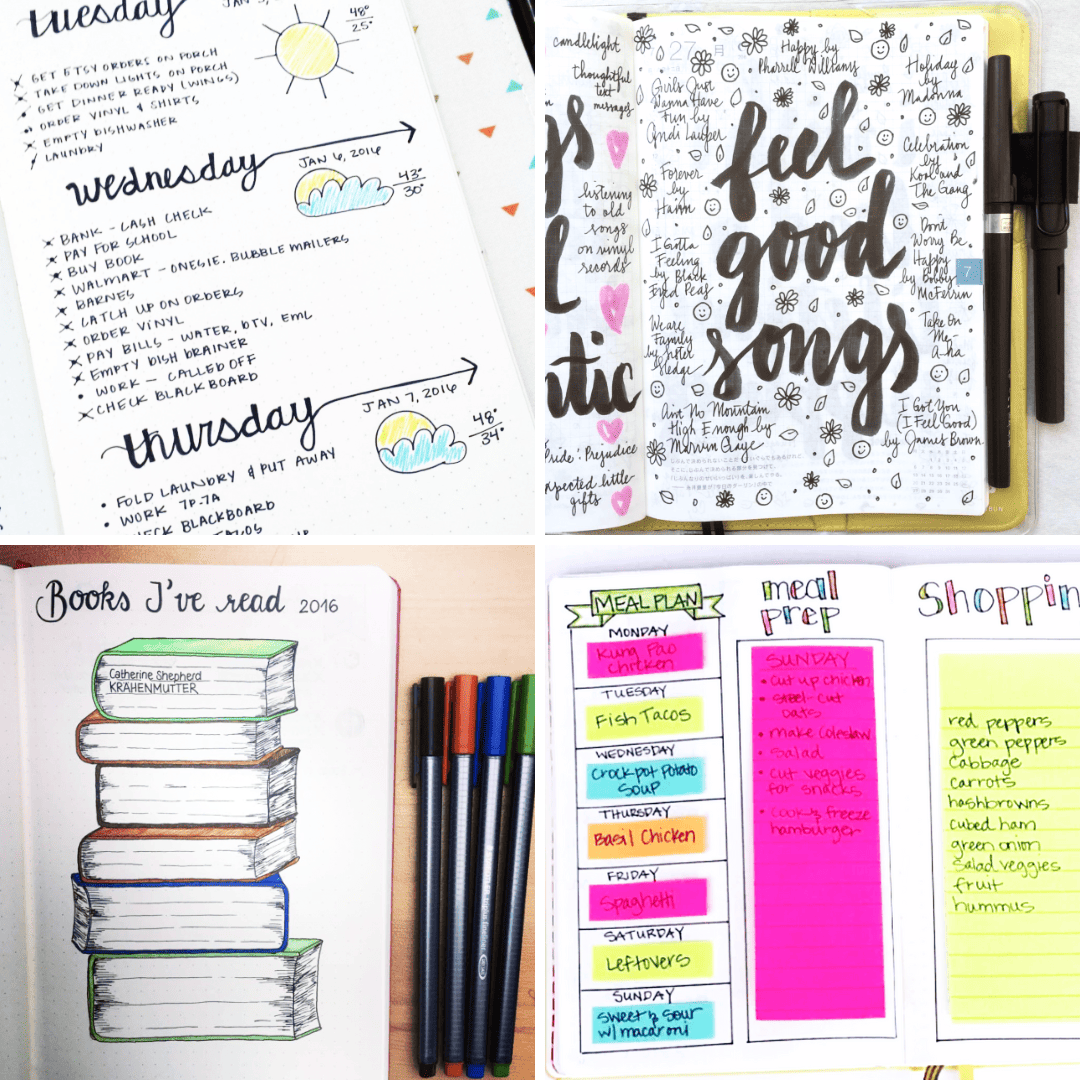 tuesday
48°
25°
GET ETSY ORDERS ON PORCH
TAKE DOWN LIGHTS ON PORCH
GET DINNER READY (WINGS)
ORDER VINYL & SHIRTS
EMPTY DISHWASHER
LAUNDRY
wednesday
JAN 6, 2016
43°
30°
BANK - CASH CHECK
PAY FOR SCHOOL
BUY BOOK
WALMART - ONESIE, BUBBLE MAILERS
BARNES
CATCH UP ON ORDERS
ORDER VINYL
PAY BILLS - WATER, DTV, EML
EMPTY DISH DRAINER
WORK - CALLED OFF
CHECK BLACKBOARD
thursday
JAN 7, 2016
48°
34°
• FOLD LAUNDRY & PUT AWAY
• WORK 7P-7A
CHECK BLACKBOARD
TACOS
candlelight
thoughtful
text
messages
listening
to old
songs
on vinyl
records
tic
Pride & Prejudice
gifts
27
feel
good
songs
Happy by
Pharrell Williams
Girls Just
Wanna Have
Fun by
Cyndi Lauper
Forever
by
Haim
I Gotta
Feeling
by Black
Eyed Peas
We are
Family
by Sister
Sledge
Ain't No Mountain
High Enough by
Marvin Gaye
Holiday
by
Madonna
Celebration
by
Kool and
The Gang
Don't
Worry Be
Happy
by Bobby
McFerrin
7
Take On
Me
A-ha
I Got You
(I Feel Good)
by James Brown
Books I've read 2016
Catherine Shepherd
KRÄHENMUTTER
MEAL PLAN
MONDAY
Kung Pao
chicken
TUESDAY
Fish Tacos
WEDNESDAY
Crockpot Potato
Soup
THURSDAY
Basil Chicken
FRIDAY
Spaghetti
SATURDAY
Leftovers
SUNDAY
Sweet & Sour
w/ macaroni
meal
prep
SUNDAY
• cut up chicken
• cut
oats
• make coleslaw
• salad
• cut veggies
for snacks
• cook & freeze
hamburger
Shoppin
red peppers
green peppers
cabbage
carrots
hashbrowns
cubed ham
green onion
salad veggies
fruit
hummus